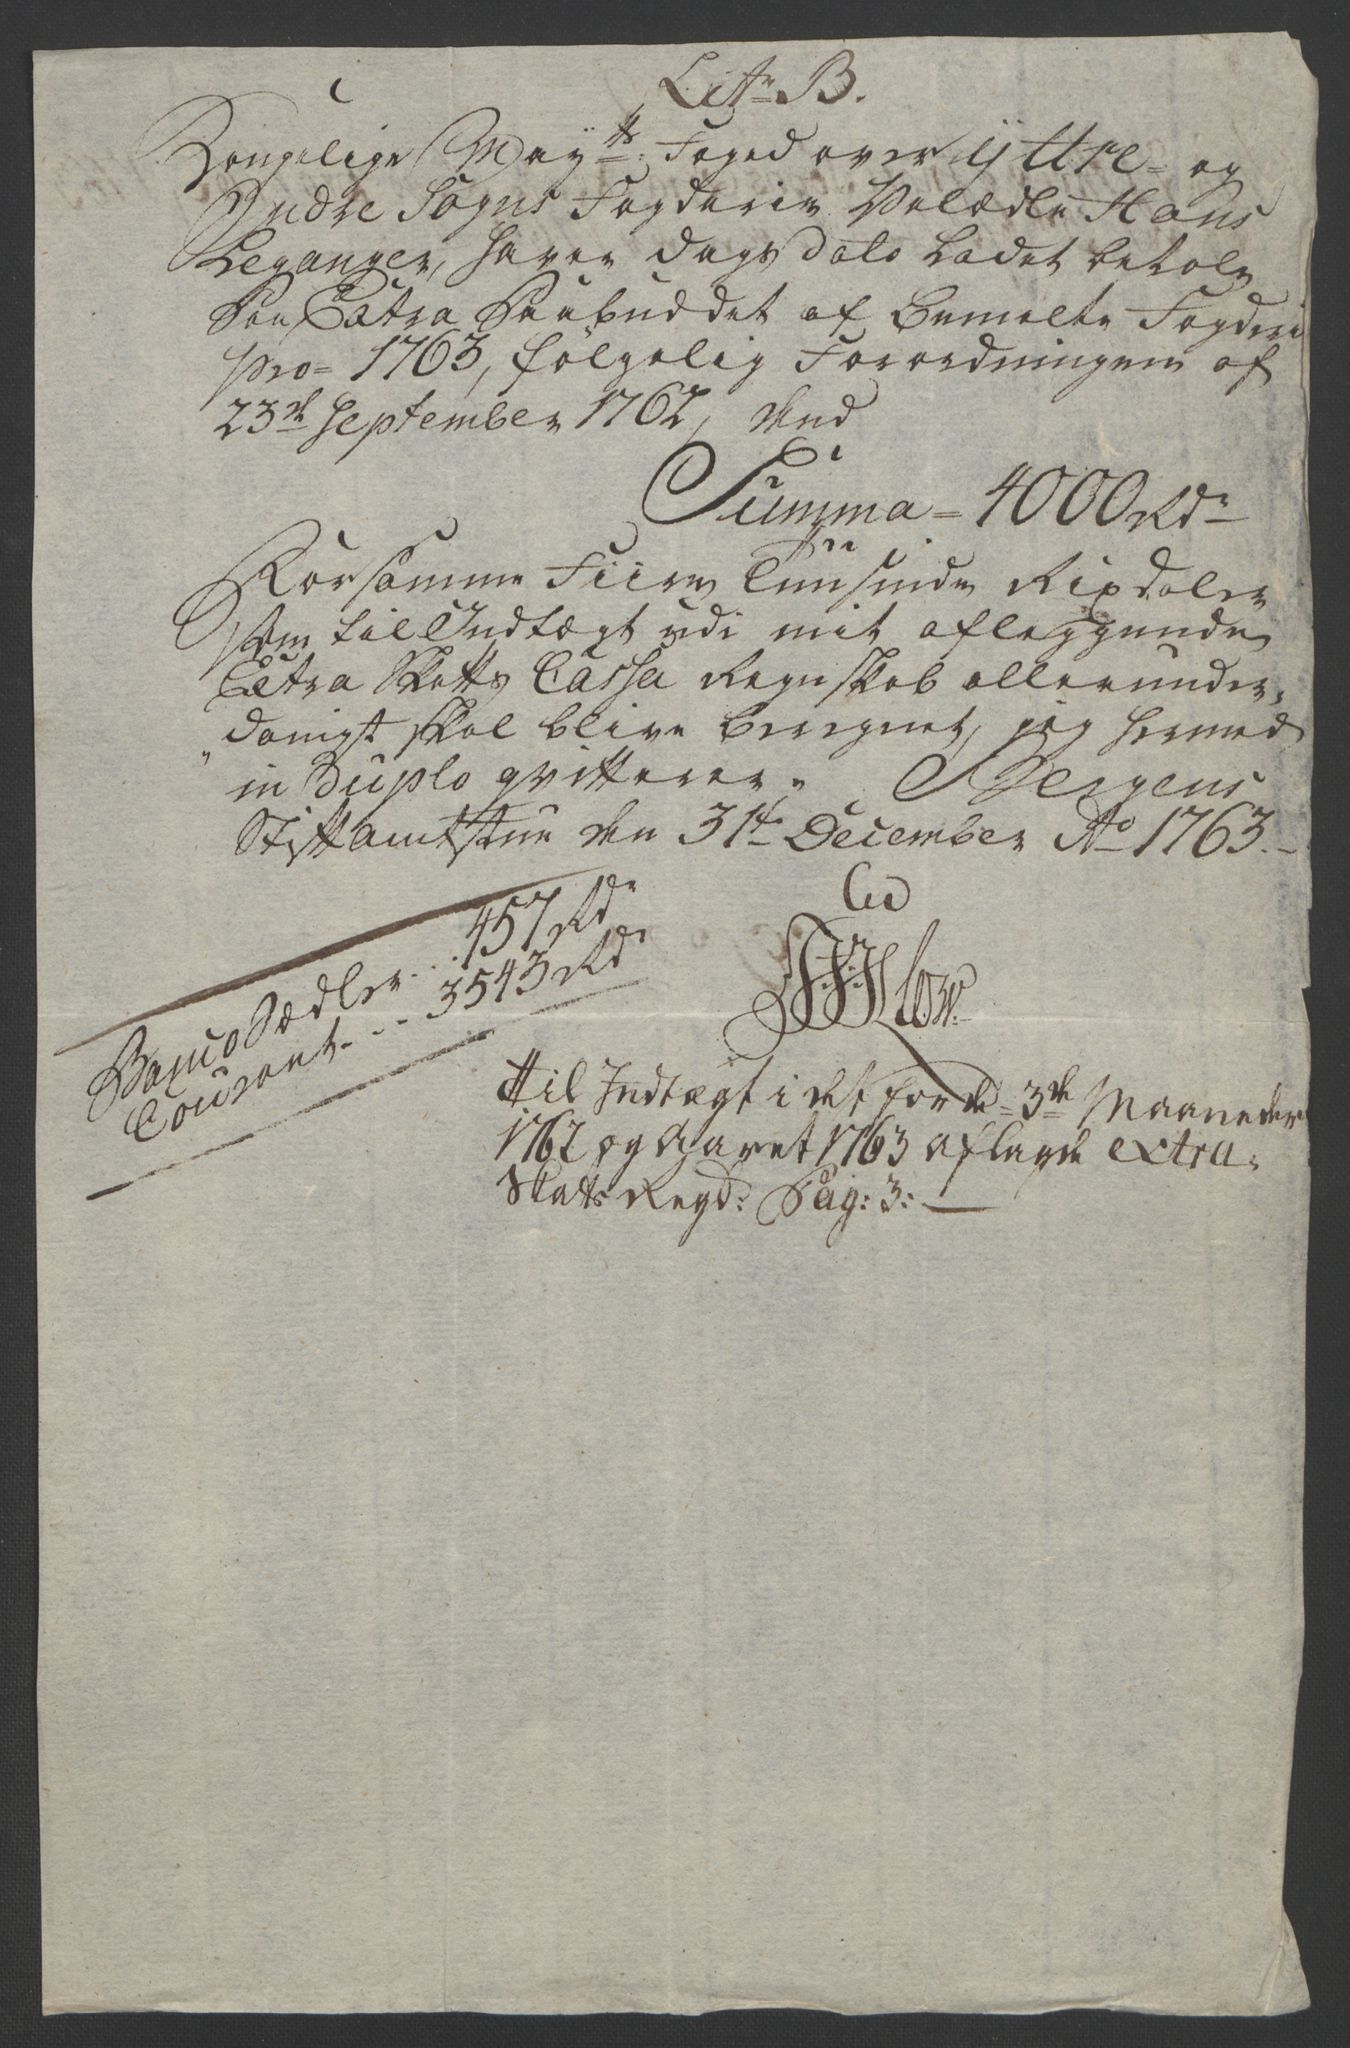 Litr B.
Kongelige Mayts: Foged over Yttre- og
Indre Sogns Fogderie Velædle Hans
Leganger, haver dags dato ladet betale
Paa Extra Paabuddet af bemelte Fogderi
pro= 1763, følgelig Forordningen af
23de September 1762, dend
Summa = 4000 Rdr
For samme Fiire Tuusinde Rixdaler
som til Indtægt udi mit aflæggende
Extra Skatts Cassa Regnskab allerunder-
danigst skal blive beregnet, jeg hermed
in Duplo qvitterer. Bergens
Stiftamtstue den 31te December Ao 1763.
Banco Sedler... 457 Rdr
Courant... 3543 Rdr
til Indtægt i det for de 3de Maaneder
1762 og Aaret 1763 aflagde extra
Skatts Regds: Pag: 3: